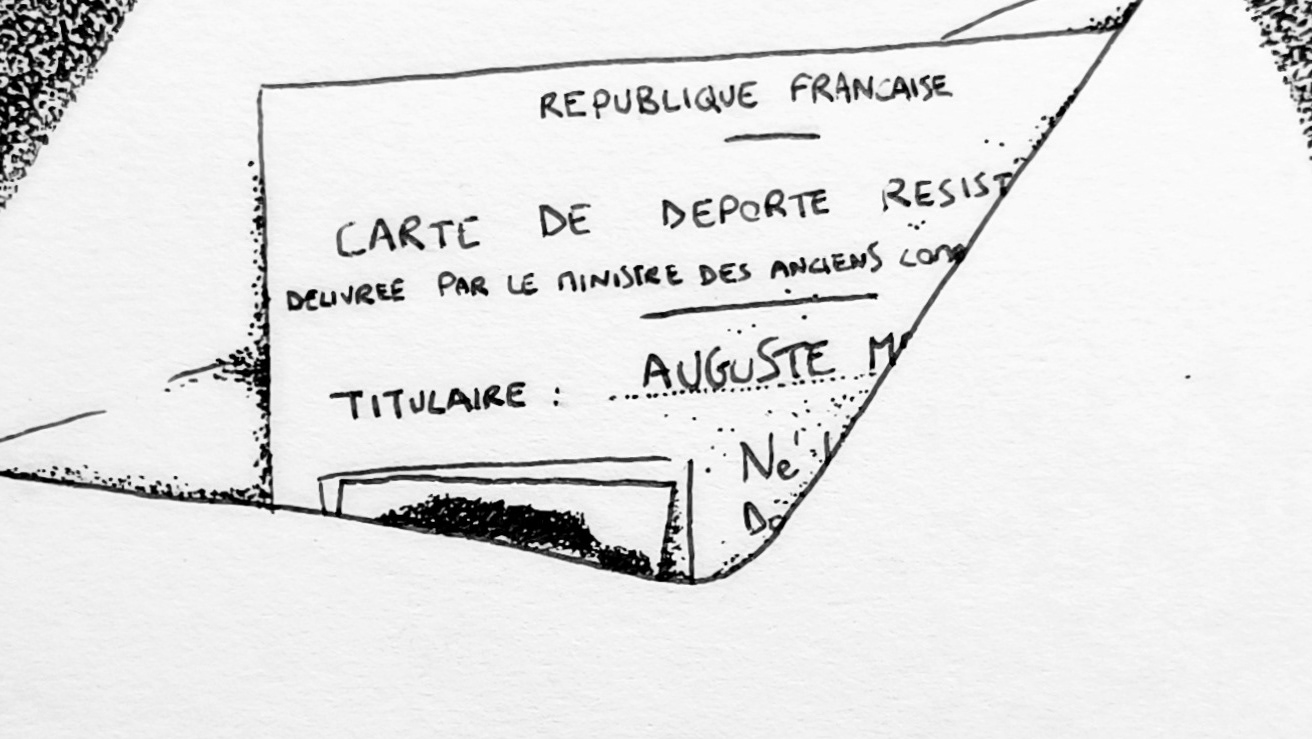 REPUBLIQUE FRANCAISE
CARTE DE DEPORTE RESIST
DELIVREE PAR LE MINISTRE DES ANCIENS COM
TITULAIRE : AUGUSTE M
Né
Do